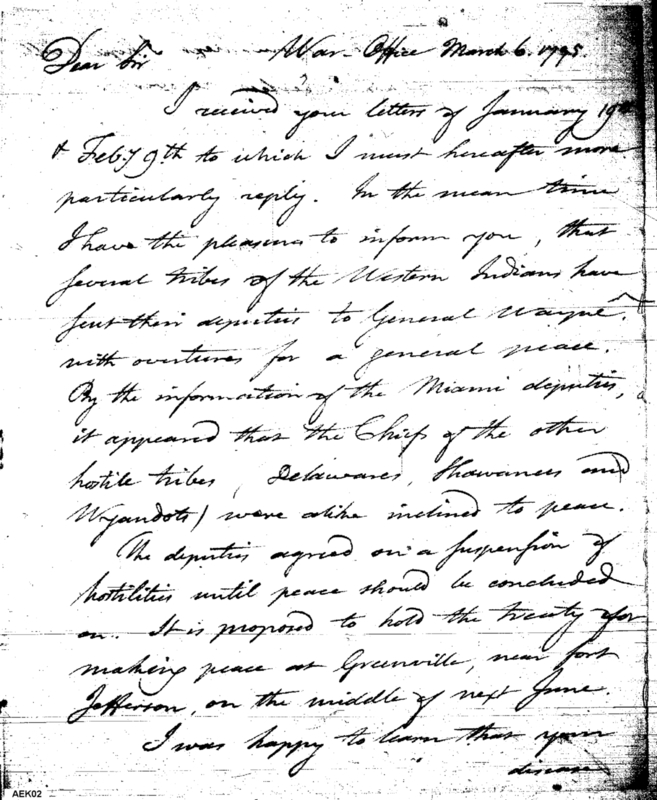 War-Office March 6. 1795.
Dear Sir
I received your letters of January 19th
& Feby 9th to which I must hereafter more
particularly reply. In the mean time
I have the pleasure to inform you, that
several tribes of the Western Indians have
sent their deputies to General Wayne,
with overtures for a general peace.
By the information of the Miami deputies,
it appeared that the Chiefs of the other
hostile tribes (Delawares, Shawanees and
Wyandots) were alike inclined to peace.
The deputies agreed on a suspension of
hostilities until peace should be concluded
on. It is proposed to hold the treaty for
making peace at Greenville, near fort
Jefferson, on the middle of next June.
I was happy to learn that your
disease
AEK02